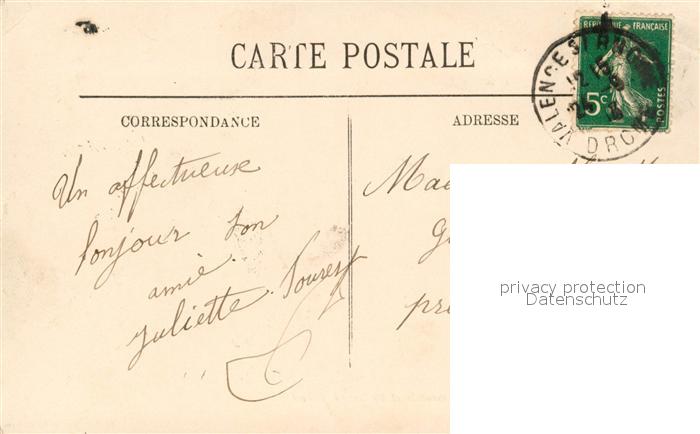 CARTE POSTALE
REPUBLIQUE FRANÇAISE
5c
POSTES
VALENCE
DROME
CORRESPONDANCE
ADRESSE
Un affectueux
bonjour ton
amie
Juliette
privacy protection
Datenschutz